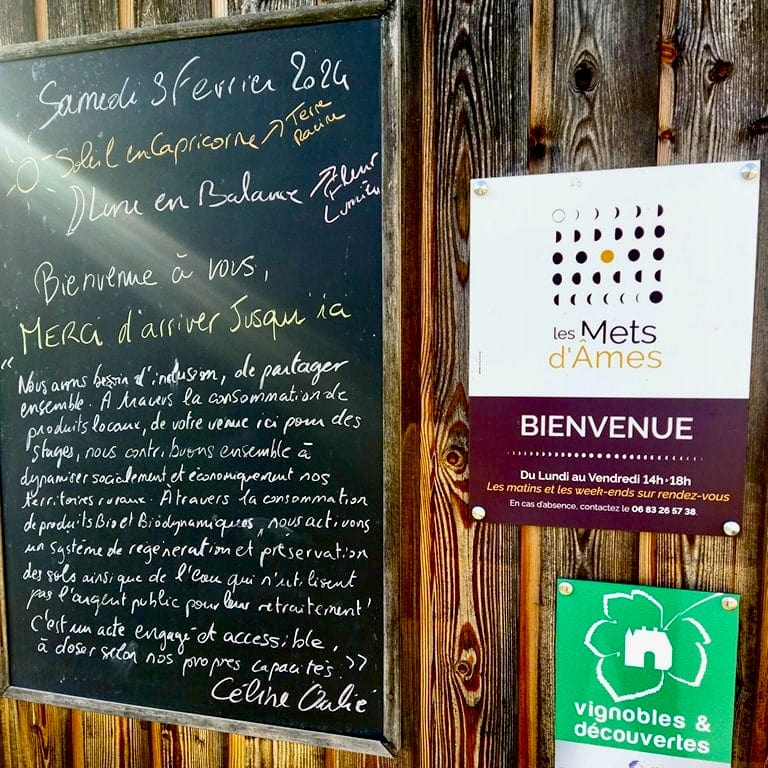 Samedi 3 Fevrier 2024
Soleil en Capricorne ↗ Terre
Racine
Lune en Balance ↗ Fleur
Lumière
Bienvenue à vous,
MERCI d'arriver Jusqu'ici
"Nous avons besoin d'inclusion, de partager
ensemble. A travers la consommation de
produits locaux, de votre venue ici pour des
stages, nous contribuons ensemble à
dynamiser socialement et économiquement nos
territoires ruraux. A travers la consommation
de produits Bio et Biodynamiques, nous activons
un système de régénération et préservation
des sols ainsi que de l'eau qui n'utilisent
pas l'argent public pour leur retraitement!
C'est un acte engagé et accessible,
à doser selon nos propres capacités. >>
Céline
les Mets
d'Âmes
BIENVENUE
Du Lundi au Vendredi 14h›18h
Les matins et les week-ends sur rendez-vous
En cas d'absence, contactez le 06 83 26 57 38.
vignobles &
découvertes